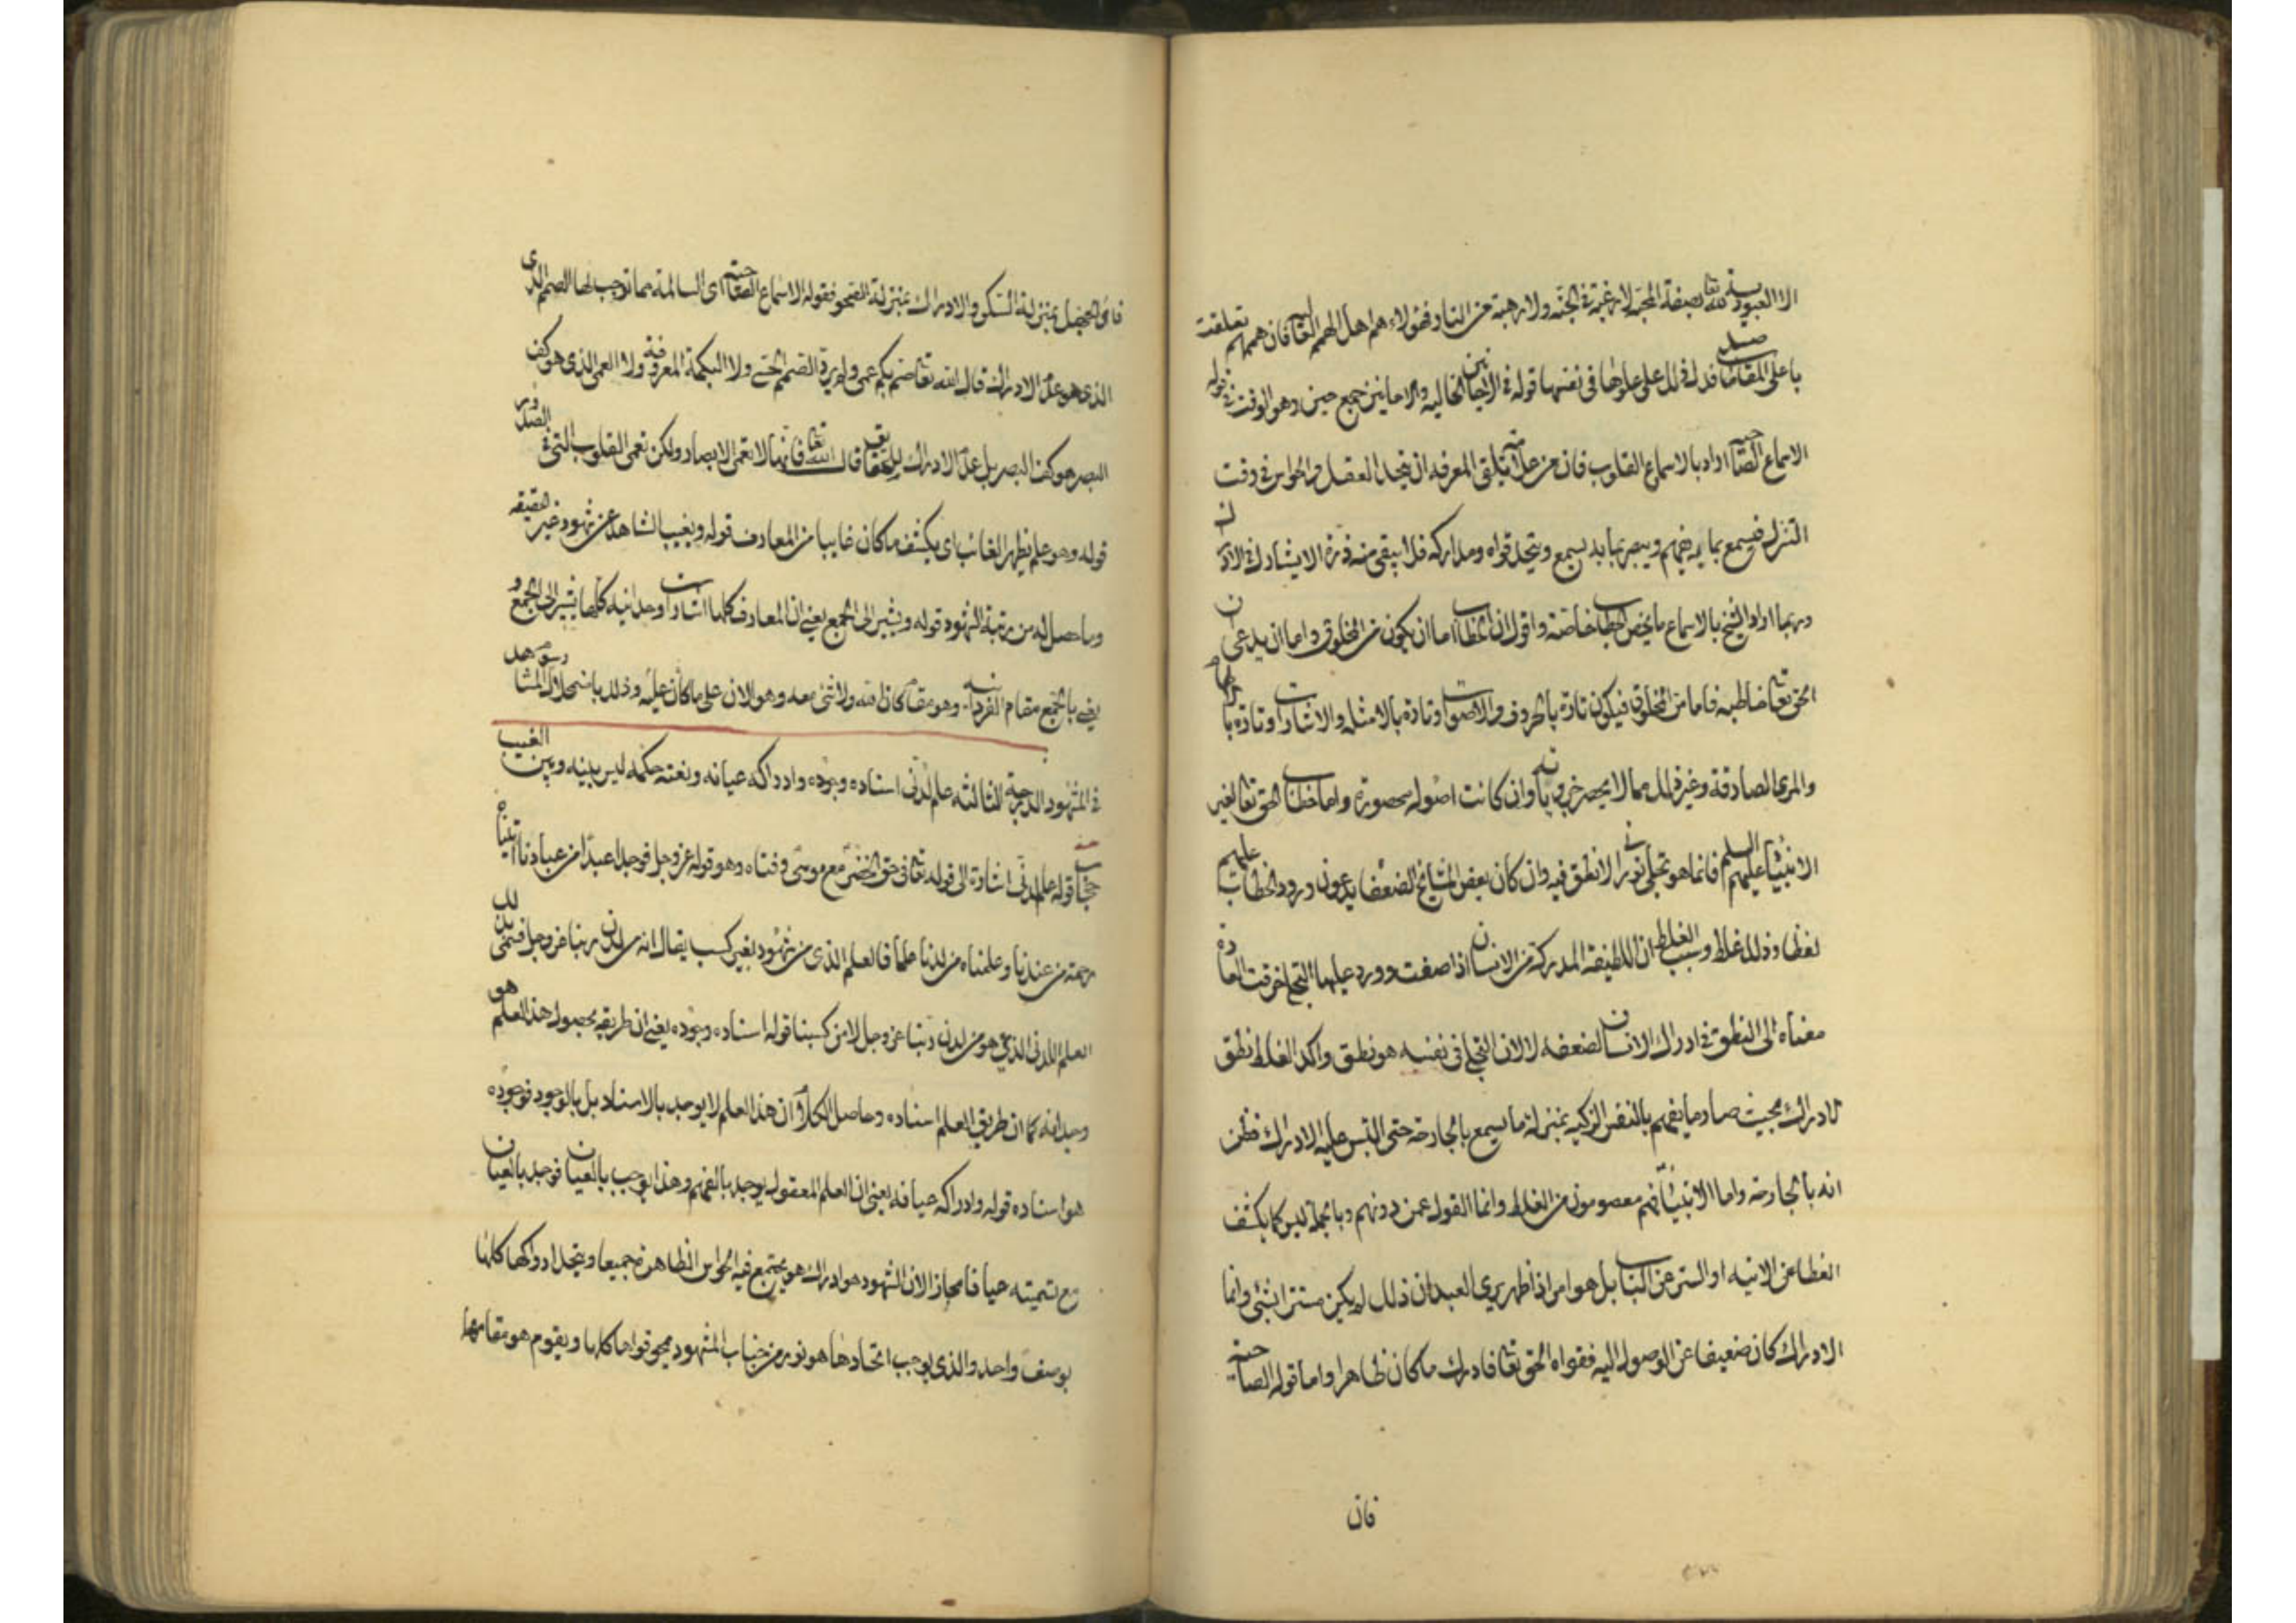 الا العبودية لله تعالى بصفة المحبة لا رغبة في الجنة ولا رهبة من النار فهؤلاء هم اهل الهمم العالية فان هممهم تعلقت
باعلى المقامات فدل ذلك على علوها في نفسها قوله في الاحايين الخالية والاحايين جمع حين وهو الوقت قوله في
الاسماع الصاحية اراد بالاسماع القلوب فان من علامة تلقي المعرفة ان يتحد العقل والحواس في وقت
التنزل فيسمع بما به يفهم ويبصر بما به يسمع ويتحد قواه ومداركه فلا يبقى منه ذرة الا يشارك في الادراك
وربما اراد الشيخ بالاسماع ما يخص الخطاب خاصة واقول ان الخطاب اما ان يكون من المخلوق واما ان يدعى ان
الحق تعالى خاطبه فاما من المخلوق فيكون تارة بالحروف والاصوات وتارة بالامثلة والاشارات وتارة
والمرئى الصادقة وغير ذلك مما لا يحصر جزوياته وان كانت اصوله محصورة واما خطاب الحق تعالى لغير
الانبياء عليهم السلم فانما هو تجلي نوراني لا نطق فيه وان كان بعض المشايخ الضعفا يدعون ورود الخطاب عليهم
لفظا وذلك غلط وسبب الغلط ان اللطيفة المدركة من الانسان اذا صفت وورد عليها التجلي خرقت العادة
معناه الى النطق في ادراك الانسان لضعفه لا لان التجلي في نفسه هو نطق واكد الغلط نطق
الادراك بحيث صار ما يفهم بالنفس الزكية بمنزلة ما يسمع بالجارحة حتى التبس عليه الادراك فظن
انه بالجارحة واما الانبياء فانهم معصومون من الغلط وانما القول عمن دونهم وبالجملة ليس كما يكشف
الغطا عن الانية او الستر عن الباب بل هو امر اذا ظهر يرى العبد ان ذلك لم يكن مستترا بشئ وانما
الادراك كان ضعيفا عن الوصول اليه فقواه الحق تعالى فادرك ما كان ظاهرا واما قوله الصاحية
فان
فان الجهل بمنزلة السكر والادراك بمنزلة الصحو فقوله الاسماع الصاحية اى السالمة مما توجب لها الصمم الذى
الذى هو عدم الادراك قال الله تعالى صم بكم عمي ولم يرد الصمم الحسي ولا البكمة المعرفة ولا العمى الذى هو كف
البصر هو كف البصر بل عدم الادراك للحقايق قال الله تعالى فانها لا تعمى الابصار ولكن تعمى القلوب التي في الصدور
قوله وهو علم يظهر الغائب اى يكشف ما كان غايبا من المعارف قوله ويغيب الشاهد عن شهود غير الحقيقة
وما حصل له من رتبة الشهود قوله ويشير الى الجمع يعني ان المعارف كلها اشارات وحدانية كلها تشير الى الجمع و
يعني بالجمع مقام الفردانية وهو مقام كان الله ولا شئ معه وهو الان على ما كان عليه وذلك باضمحلال الرسوم المشاهد
في المشهود الدرجة الثالثة علم لدني اسناده وجوده وادراكه عيانه ونعته حكمه ليس بينه وبين الغيب
حجاب قوله علم لدني اشارة الى قوله تعالى في حق الخضر مع موسى وفتاه وهو قوله عز وجل فوجدا عبدا من عبادنا اتيناه
رحمة من عندنا وعلمناه من لدنا علما فالعلم الذى من شهود بغير كسب يقال انه من لدن ربنا عز وجل فسمى بذلك
العلم اللدني الذى هو من لدن ربنا عز وجل لا من كسبنا قوله اسناده وجوده يعني ان طريقه حصول هذا العلم هو
وجدانه كما ان طريق العلم اسناده وحاصل الكلام ان هذا العلم لا يوجد بالاسناد بل بالوجود فوجوده
هو اسناده قوله وادراكه عيانه يعني ان العلم المعقول يوجد بالفهم وهذا يوجب بالعيان فوجد بالعيان
مع تسميته عيانا مجازا لان الشهود هو ادراك هو يجتمع فيه الحواس الظاهرة جميعا ويتحد ادراكها كلها
بوصف واحد والذى يوجب اتحادها هو نور من جناب المشهود يمحو قواها كلها ويقوم هو مقامها